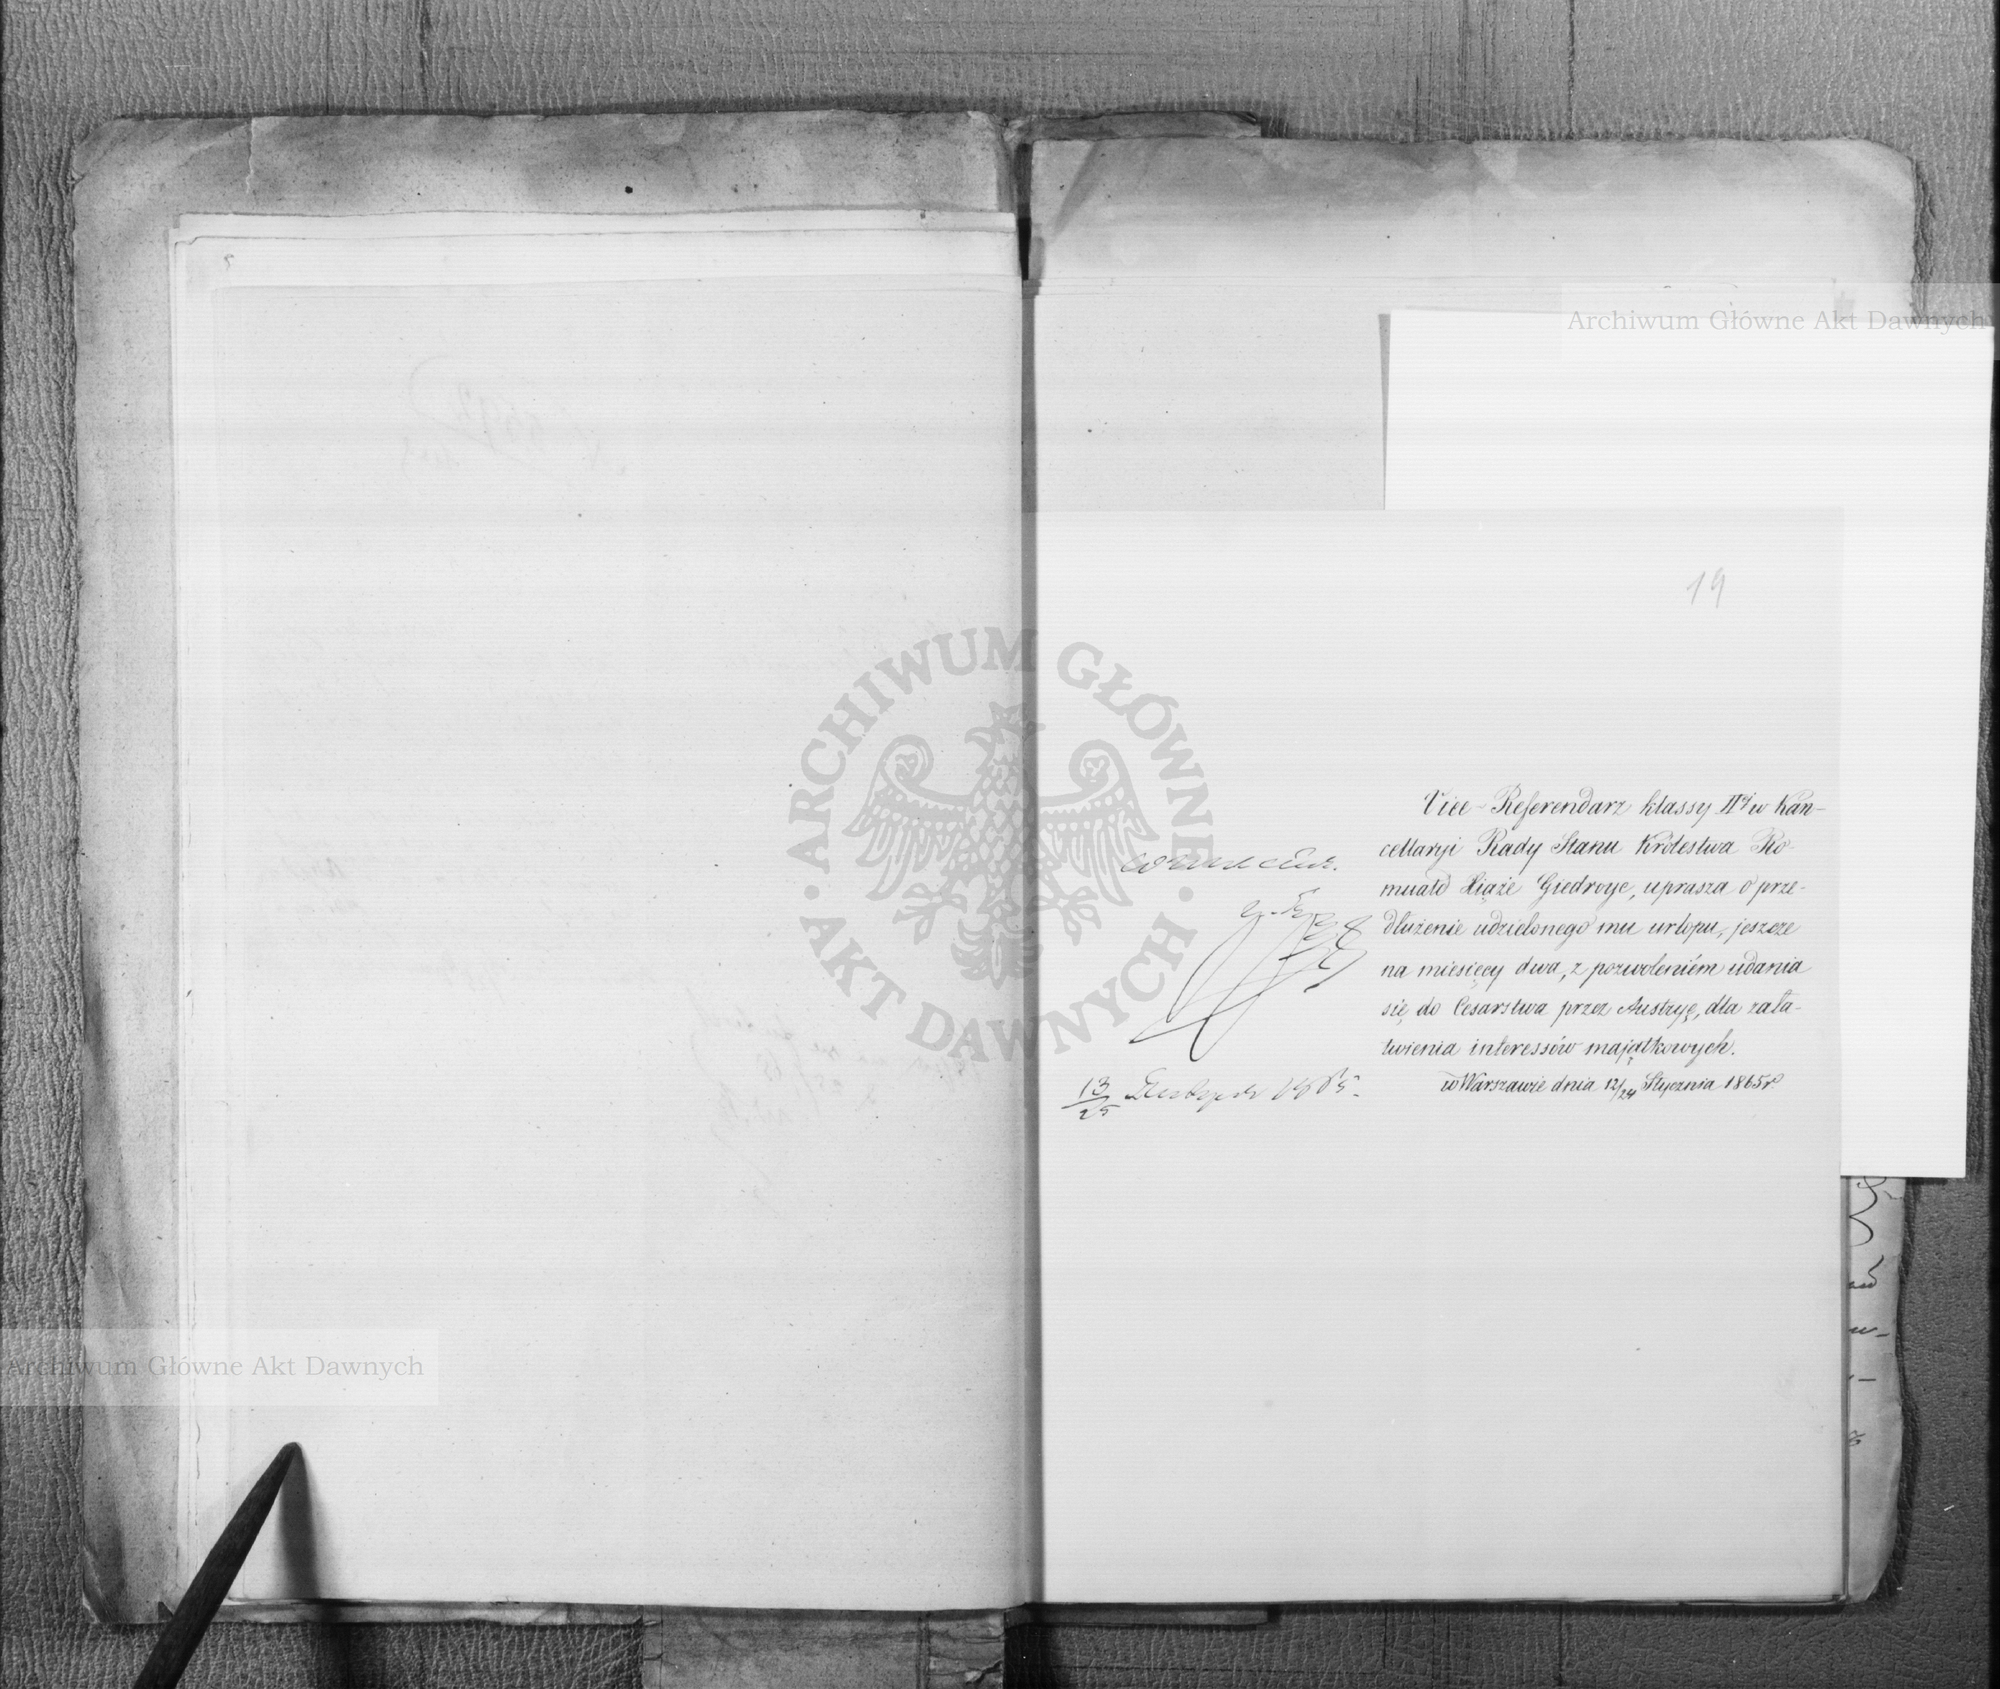 Archiwum Główne Akt Dawnych
19
ARCHIWUM GŁÓWNE · AKT DAWNYCH ·
Vice-Referendarz klassy IIéj w Kan-
cellaryi Rady Stanu Królestwa Ro-
muald Xiąże Giedroyc, uprasza o prze-
dłużenie udzielonego mu urlopu, jeszcze
na miesięcy dwa, z pozwoleniém udania
się do Cesarstwa przez Austryę, dla zała-
twienia interessów majątkowych.
w Warszawie dnia 12/24 Stycznia 1865 r
13/25 1865.
Archiwum Główne Akt Dawnych